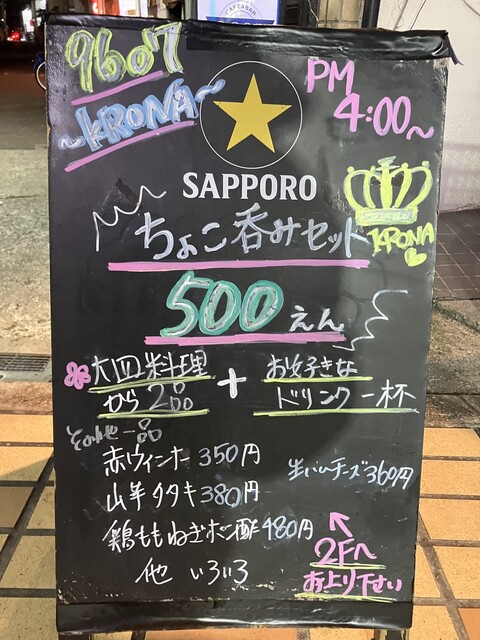 CAFE&BAR
9607
~KRONA~
PM
4:00~
SAPPORO
KRONA
ちょこ呑みセット
500えん
大皿料理
から2品
+
お好きな
ドリンク一杯
その他一品
赤ウィンナー350円
生ハムチーズ360円
山芋タタキ380円
鶏ももねぎポン酢480円
他 いろいろ
2Fへ
お上り下さい